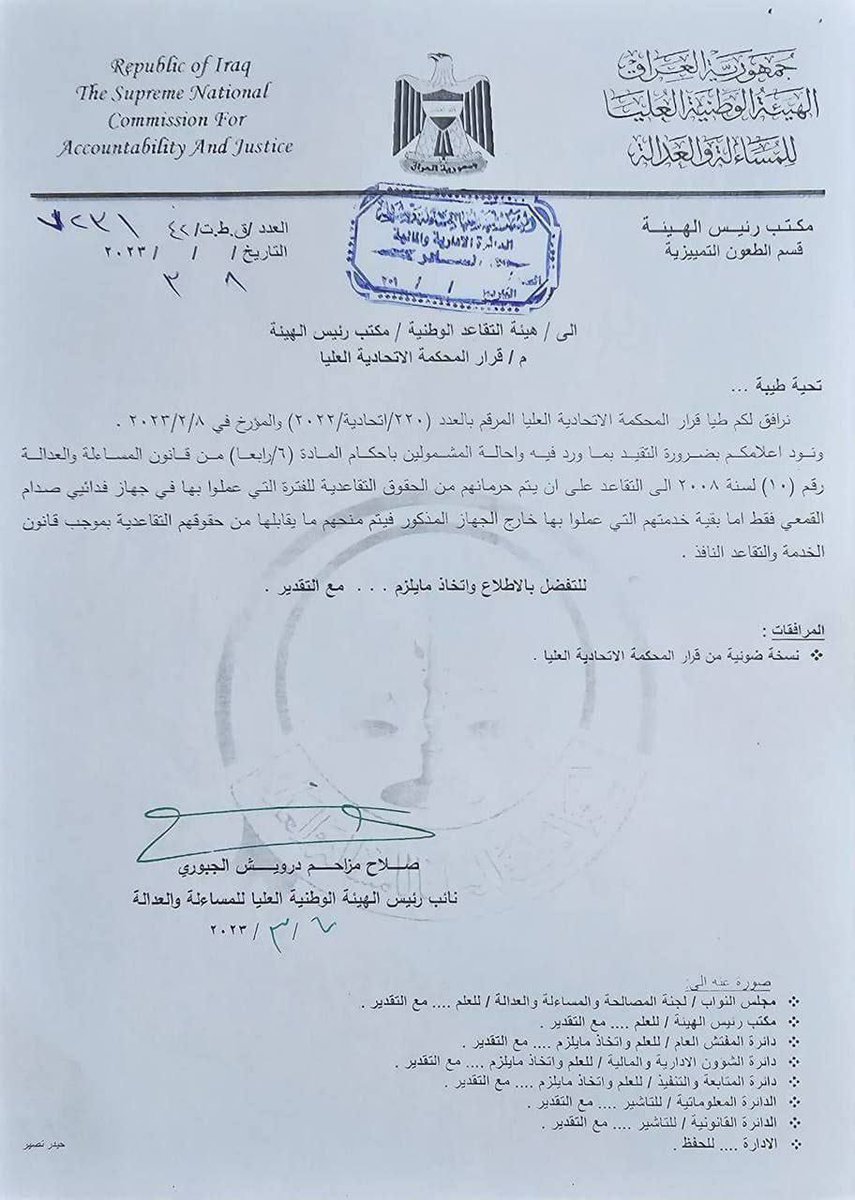 Republic of Iraq
The Supreme National
Commission For
Accountability And Justice
جمهورية العراق
الهيئة الوطنية العليا
للمساءلة والعدالة
جمهورية العراق
مكتب رئيس الهيئة
قسم الطعون التمييزية
العدد /ق.ط.ت/٤٢/
التاريخ ٨ / ٣ / ٢٠٢٣
الدائرة الادارية والمالية
العدد
التاريخ / / ٢٠١
الى / هيئة التقاعد الوطنية / مكتب رئيس الهيئة
م / قرار المحكمة الاتحادية العليا
تحية طيبة ...
نرافق لكم طيا قرار المحكمة الاتحادية العليا المرقم بالعدد (٢٢٠/اتحادية/٢٠٢٢) والمؤرخ في ٢٠٢٣/٢/٨ .
ونود اعلامكم بضرورة التقيد بما ورد فيه واحالة المشمولين باحكام المادة (٦/رابعا) من قانون المساءلة والعدالة
رقم (١٠) لسنة ٢٠٠٨ الى التقاعد على ان يتم حرمانهم من الحقوق التقاعدية للفترة التي عملوا بها في جهاز فدائيي صدام
القمعي فقط اما بقية خدمتهم التي عملوا بها خارج الجهاز المذكور فيتم منحهم ما يقابلها من حقوقهم التقاعدية بموجب قانون
الخدمة والتقاعد النافذ .
للتفضل بالاطلاع واتخاذ مايلزم . . . مع التقدير .
المرافقات :
❖ نسخة ضوئية من قرار المحكمة الاتحادية العليا .
صلاح مزاحم درويش الجبوري
نائب رئيس الهيئة الوطنية العليا للمساءلة والعدالة
٦ / ٣ / ٢٠٢٣
صورة عنه الى:
❖ مجلس النواب / لجنة المصالحة والمساءلة والعدالة / للعلم .... مع التقدير .
❖ مكتب رئيس الهيئة / للعلم .... مع التقدير .
❖ دائرة المفتش العام / للعلم واتخاذ مايلزم .... مع التقدير .
❖ دائرة الشؤون الادارية والمالية / للعلم واتخاذ مايلزم .... مع التقدير .
❖ دائرة المتابعة والتنفيذ / للعلم واتخاذ مايلزم .... مع التقدير .
❖ الدائرة المعلوماتية / للتاشير .... مع التقدير .
❖ الدائرة القانونية / للتاشير .... مع التقدير .
❖ الادارة .... للحفظ .
حيدر نصير